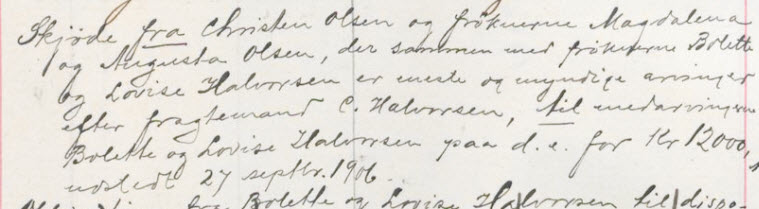 Skjøde fra Christen Olsen og frøknerne Magdalena
og Augusta Olsen, der sammen med frøknerne Bolette
og Lovise Halvorsen er eneste og myndige arvinger
efter fragtemand C. Halvorsen, til medarvingerne
Bolette og Lovise Halvorsen paa d. e. for Kr 12000,
udstedt 27 septbr. 1906.
fra Bolette og Lovise Halvorsen til dispo-